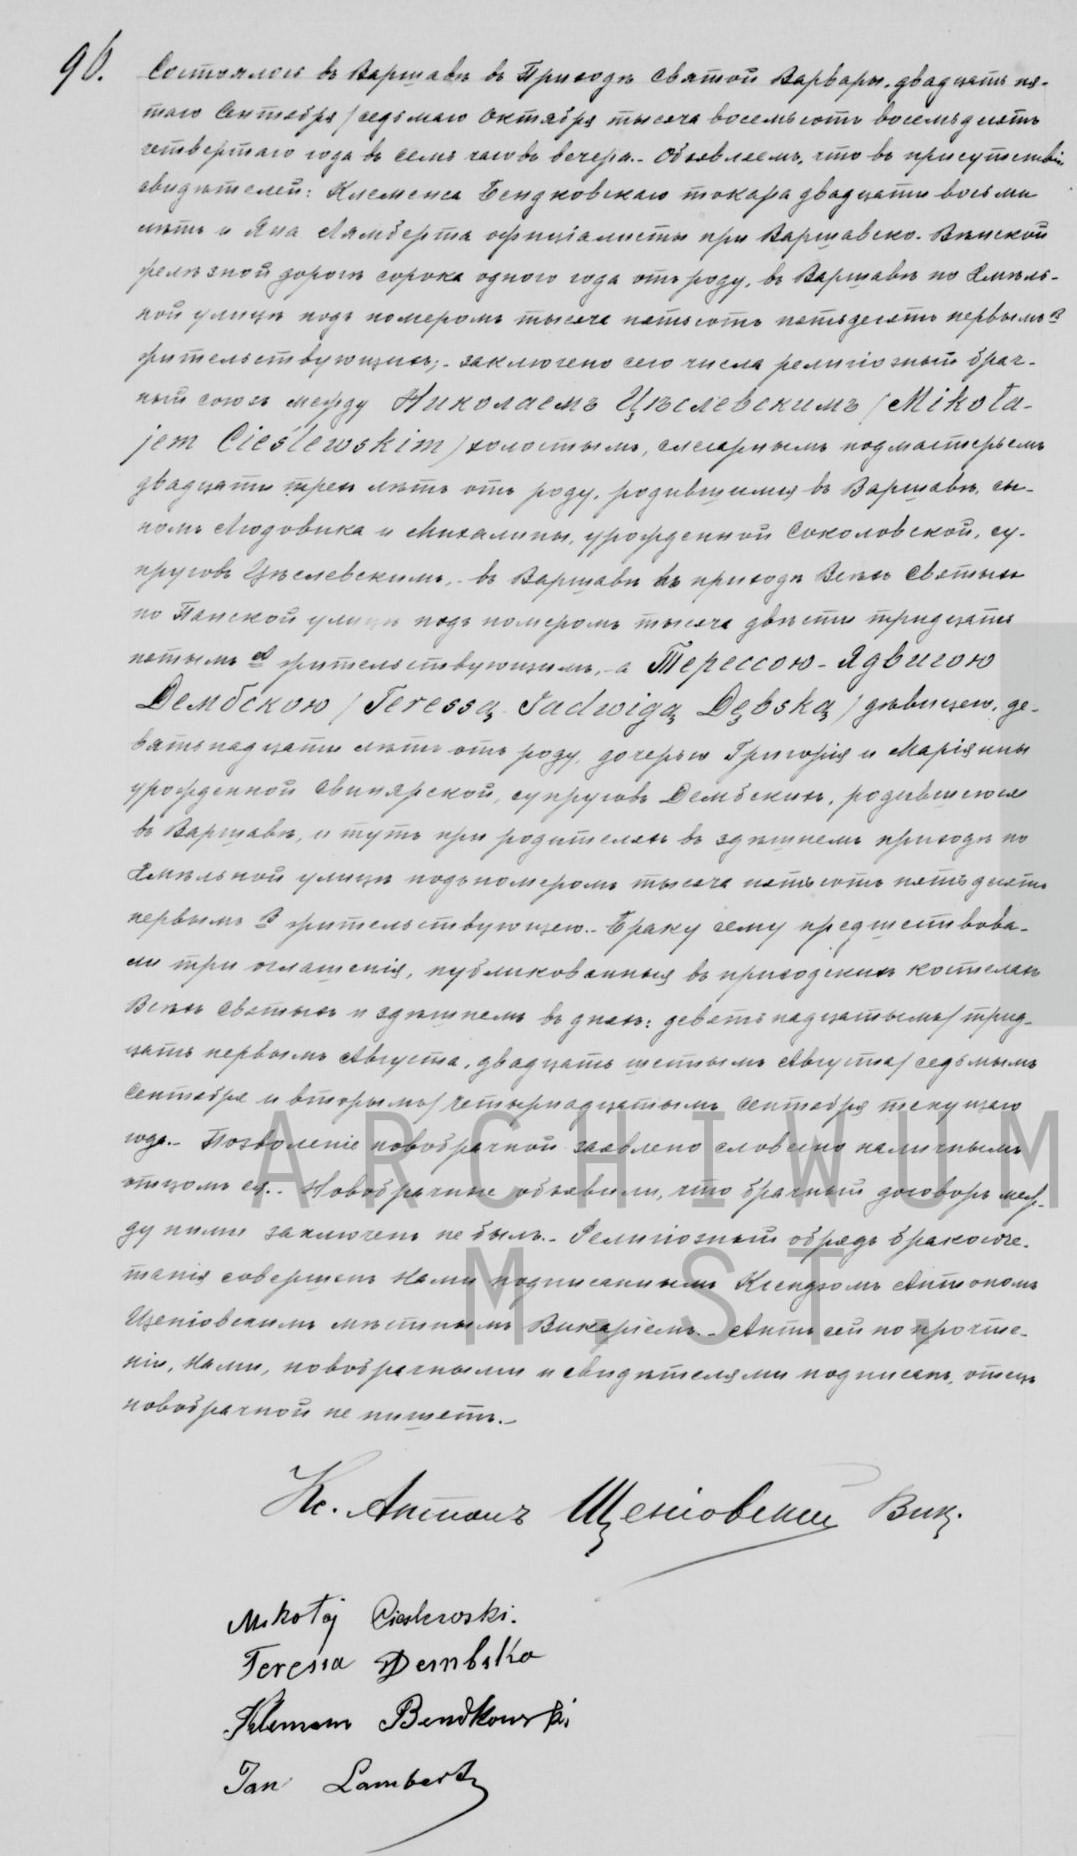 96. Состоялось въ Варшавѣ въ Приходѣ Святой Варвары, двадцать пя-
таго Сентября / седьмаго Октября тысяча восемьсотъ восемьдесятъ
четвертаго года въ семь часовъ вечера.- Объявляемъ, что въ присутствіи
свидѣтелей: Клеменса Бендковскаго токара двадцати восьми
лѣтъ и Яна Лямберта офиціалисты при Варшавско-Вѣнской
желѣзной дорогѣ сорока одного года отъ роду, въ Варшавѣ по Хмѣль-
ной улицѣ подъ номеромъ тысяча пятьсотъ пятьдесятъ первымъ В
жительствующихъ;- заключено сего числа религіозный брач-
ный союзъ между Николаемъ Цѣслевскимъ / Mikoła-
jem Cieślewskim / холостымъ, слесарнымъ подмастерьемъ
двадцати трехъ лѣтъ отъ роду, родившимся въ Варшавѣ, сы-
номъ Людовика и Михалины, урожденной Соколовской, су-
пруговъ Цѣслевскихъ,- въ Варшавѣ въ приходѣ Всѣхъ Святыхъ
по Панской улицѣ подъ номеромъ тысяча двѣсти тридцать
пятымъ жительствующимъ,- а Терессою-Ядвигою
Дембскою / Teressą Jadwigą Dębską / дѣвицею, де-
вятьнадцати лѣтъ отъ роду, дочерью Григорія и Маріянны
урожденной Свинярской, супруговъ Дембскихъ, родившеюся
въ Варшавѣ, и тутъ при родителяхъ въ здѣшнемъ приходѣ по
Хмѣльной улицѣ подъ номеромъ тысяча пятьсотъ пятьдесятъ
первымъ В жительствующею.- Браку сему предшествова-
ли три оглашенія, публикованныя въ приходскихъ костелахъ
Всѣхъ Святыхъ и здѣшнемъ въ дняхъ: девятьнадцатымъ / трид-
цать первымъ Августа, двадцать шестымъ Августа / седьмымъ
Сентября и вторымъ / четырнадцатымъ Сентября текущаго
года.- Позволеніе новобрачной заявлено словесно наличнымъ
отцомъ ея.- Новобрачные объявили, что брачный договоръ меж-
ду ними заключенъ не былъ.- Религіозный обрядъ бракосоче-
танія совершенъ Нами подписаннымъ Ксендзомъ Антономъ
Щеніовскимъ мѣстнымъ Викаріемъ.- Актъ сей по прочте-
ніи, Нами, новобрачными и свидѣтелями подписанъ, отецъ
новобрачной не пишетъ.-
Кс. Антонъ Щеніовскій Вик.
Mikołaj Cieslewski.
Teressa Dembska
Klemens Bendkowski
Jan Lambert
ARCHIWUM
M. ST.